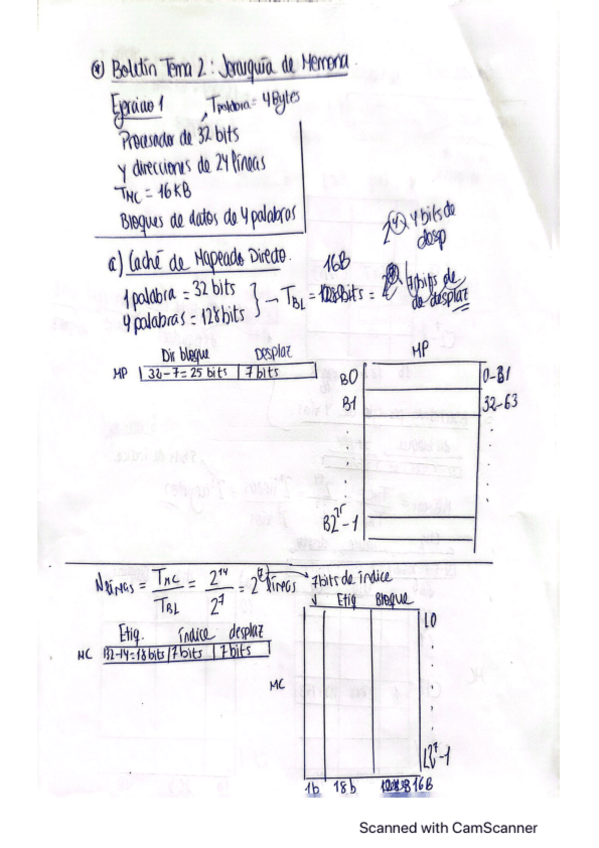 ④ Boletín Tema 2: Jerarquía de Memoria.
Ejercicio 1, Tpalabra = 4Bytes
Procesador de 32 bits
y direcciones de 24 líneas
TMC = 16KB
Bloques de datos de 4 palabras
2④ 4 bits de
desp
a) Caché de Mapeado Directo.
16B
1 palabra = 32 bits
4 palabras = 128 bits
→ TBL = 128bits = 2 7bits de
de desplaz
Dir bloque Desplaz
MP 32-7=25 bits 7 bits
MP
B0 0-31
B1 32-63
B2^25-1
Nlíneas = TMC / TBL = 2^14 / 2^7 = 2^7 líneas → 7 bits de índice
V Etiq Bloque
Etiq. índice desplaz
MC 32-14=18bits 7 bits 7 bits
L0
MC
L2^7-1
1b 18b 128B 16B
Scanned with CamScanner